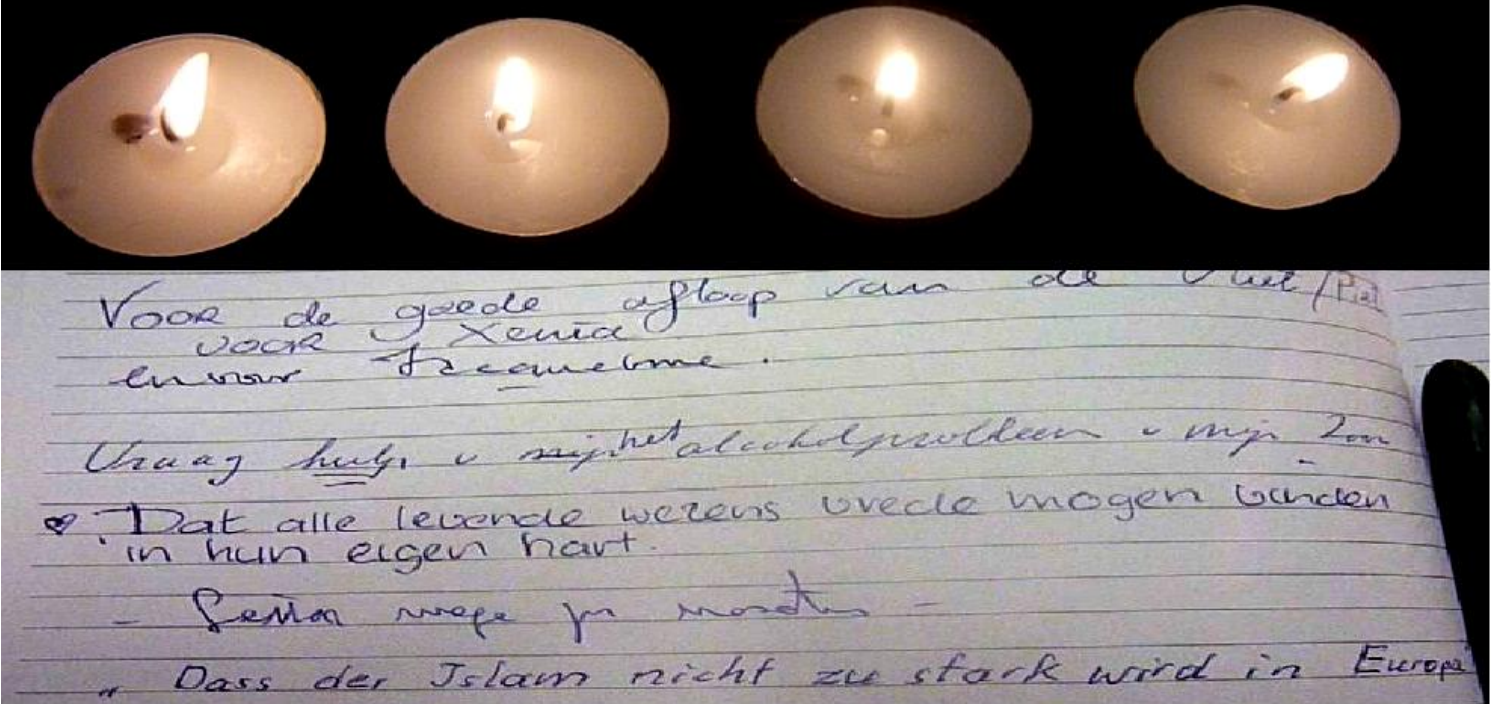 Voor de goede afloop van de
voor Xenia
en voor
Vraag hulp v mijn het alcoholprobleem v mijn Zoon
Dat alle levende wezens vrede mogen vinden
in hun eigen hart.
" Dass der Islam nicht zu stark wird in Europa